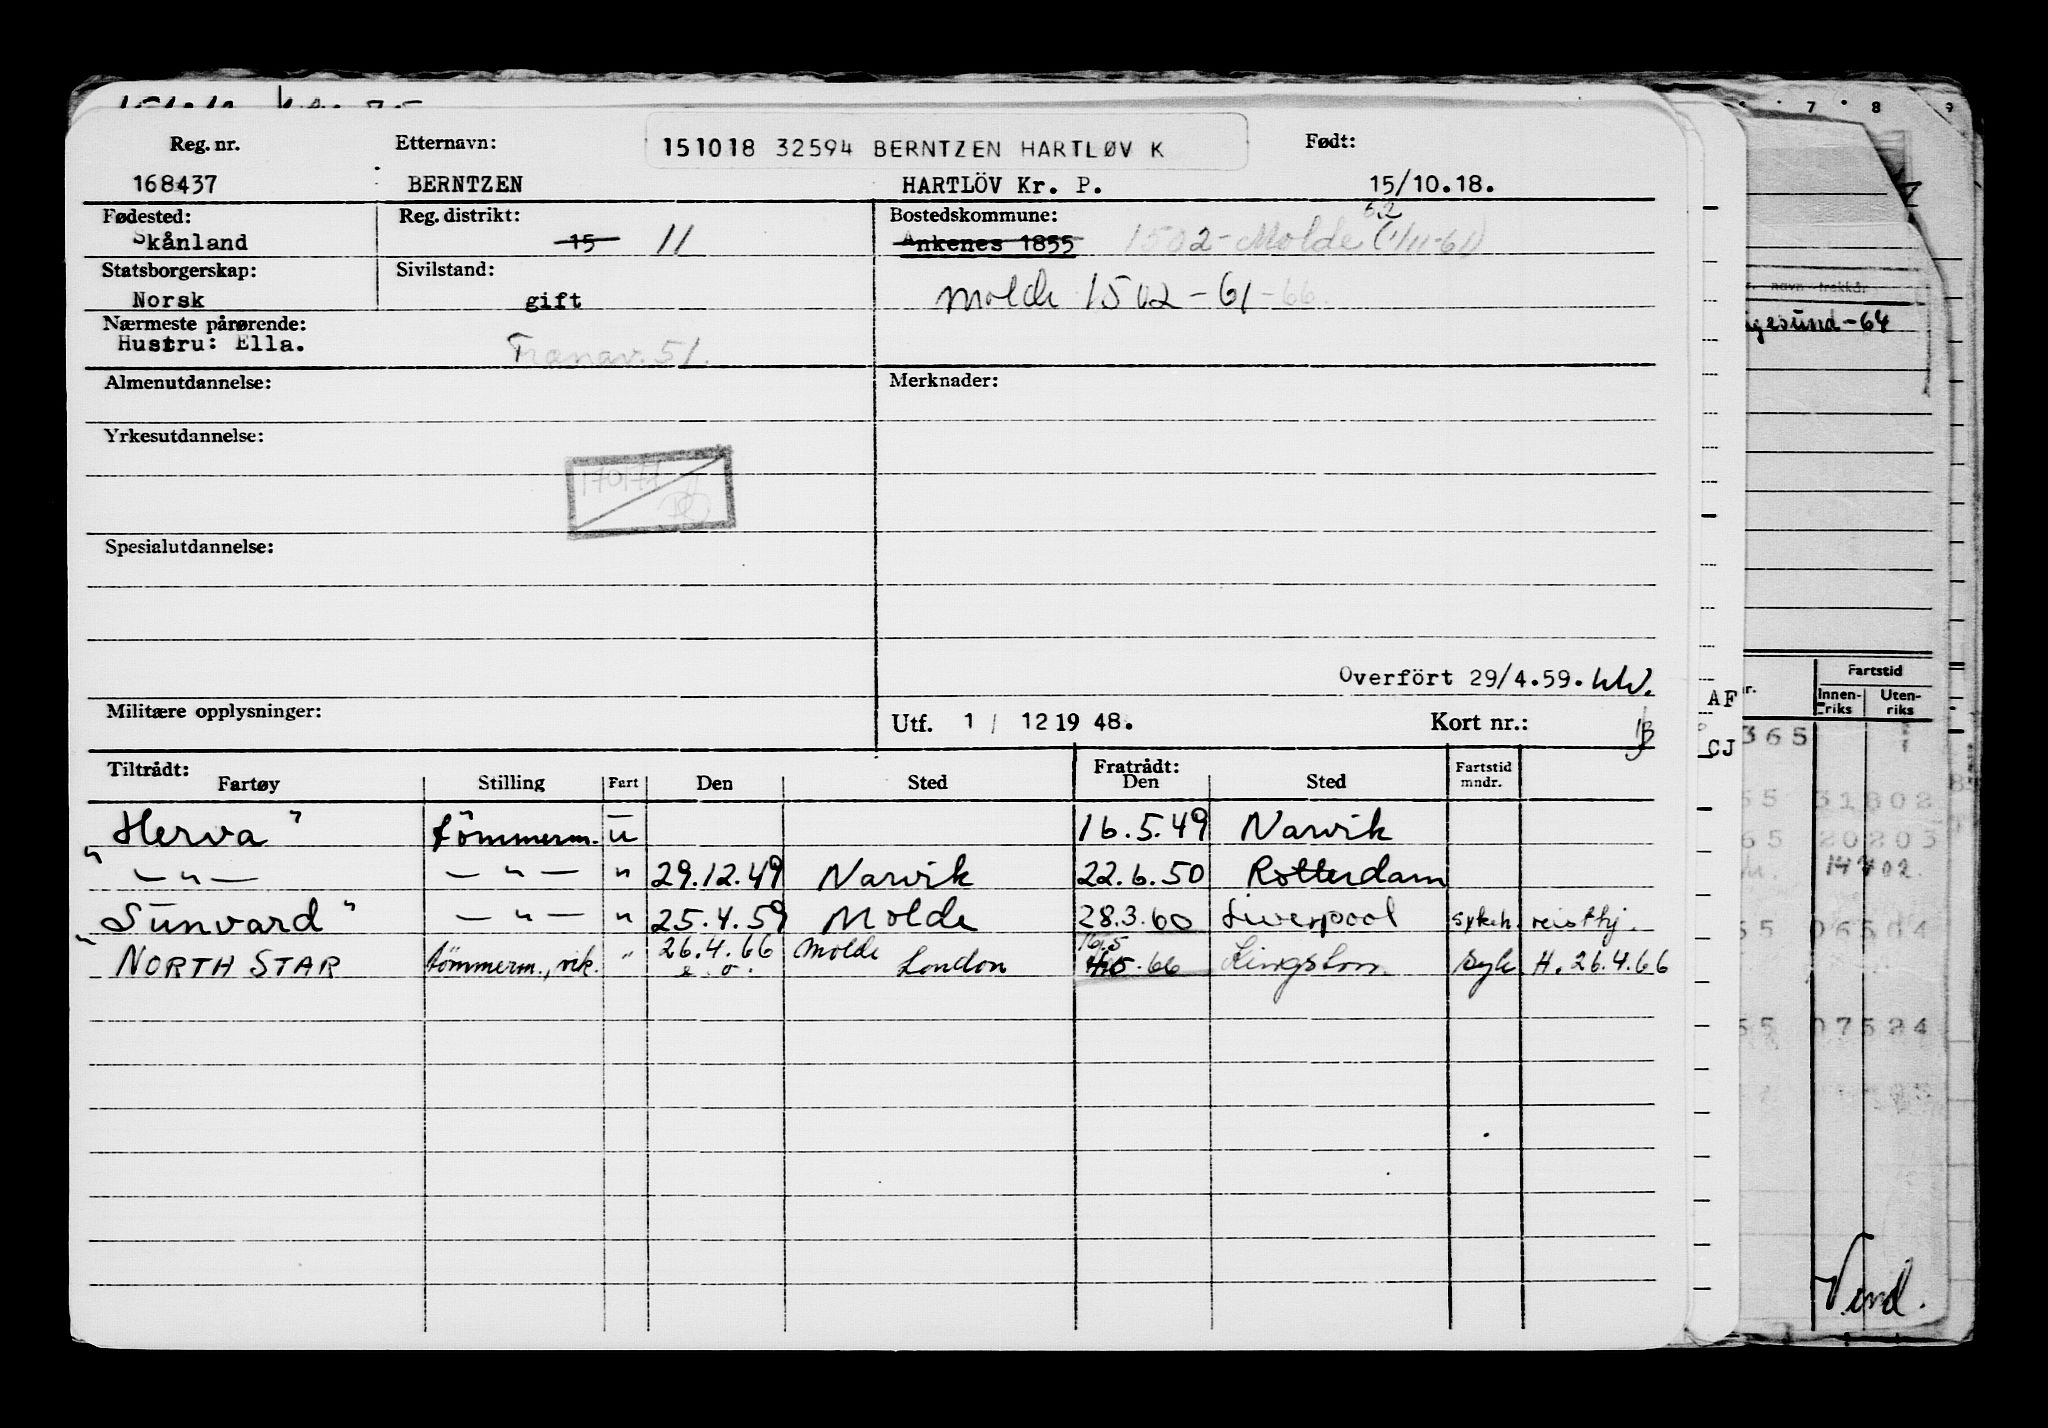 Reg. nr. Etternavn: 151018 32594 BERNTZEN HARTLØV K Født:
168437 BERNTZEN HARTLÖV Kr. P. 15/10.18.
Fødested: Reg. distrikt: Bostedskommune:
Skånland 15 11 Ankenes 1855 1502 - Molde (1/11-61) 62
Statsborgerskap: Sivilstand:
Norsk gift Molde 1502 - 61 - 66.
Nærmeste pårørende:
Hustru: Ella. Tranav. 51.
Almenutdannelse: Merknader:
Yrkesutdannelse:
Spesialutdannelse:
Overfört 29/4.59.
Militære opplysninger: Utf. 1 / 12 19 48. Kort nr.:
Tiltrådt: Fratrådt:
Fartøy Stilling Fart Den Sted Den Sted Fartstid mndr.
"Herva" tömmerm. u 16.5.49 Narvik
" — " — — " — " 29.12.49 Narvik 22.6.50 Rotterdam
Sunvard" — " — " 25.4.59 Molde 28.3.60 Liverpool sykeh. reist hj.
"NORTH STAR tömmerm., vik. " 26.4.66 Molde London 16.5 66 Kingston Syk H. 26.4.66
7 8 9
igesund-64
Fartstid
Innen-riks Uten-riks
AF
CJ
365
55 31802
65 20203
14702.
55 06504
55 07524
Vend.